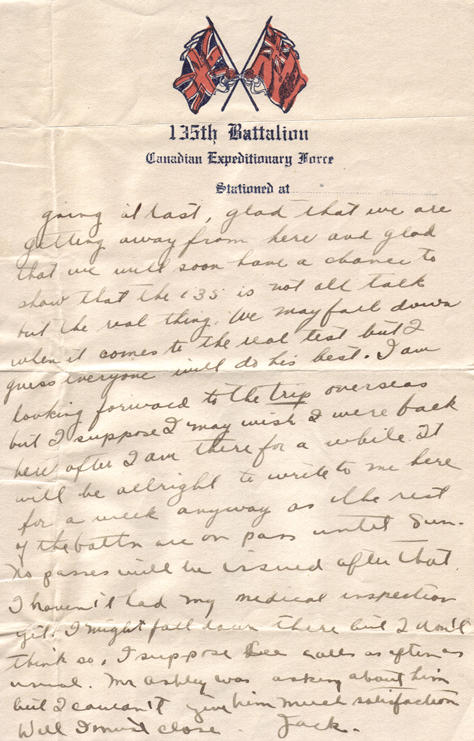 135th Battalion
Canadian Expeditionary Force
Stationed at
going at last, glad that we are
getting away from here and glad
that we will soon have a chance to
show that the 135 is not all talk
but the real thing. We may fall down
when it comes to the real test but I
guess everyone will do his best. I am
looking forward to the trip overseas
but I suppose I may wish I were back
here after I am there for a while. It
will be allright to write to me here
for a week anyway as the rest
of the battn are on pass until Sun.
No passes will be issued after that.
I haven't had my medical inspection
yet. I might fall down there but I don't
think so. I suppose Lee calls as often as
usual. Mr Ashley was asking about him
but I couldn't give him much satisfaction
Well I must close. Jack.